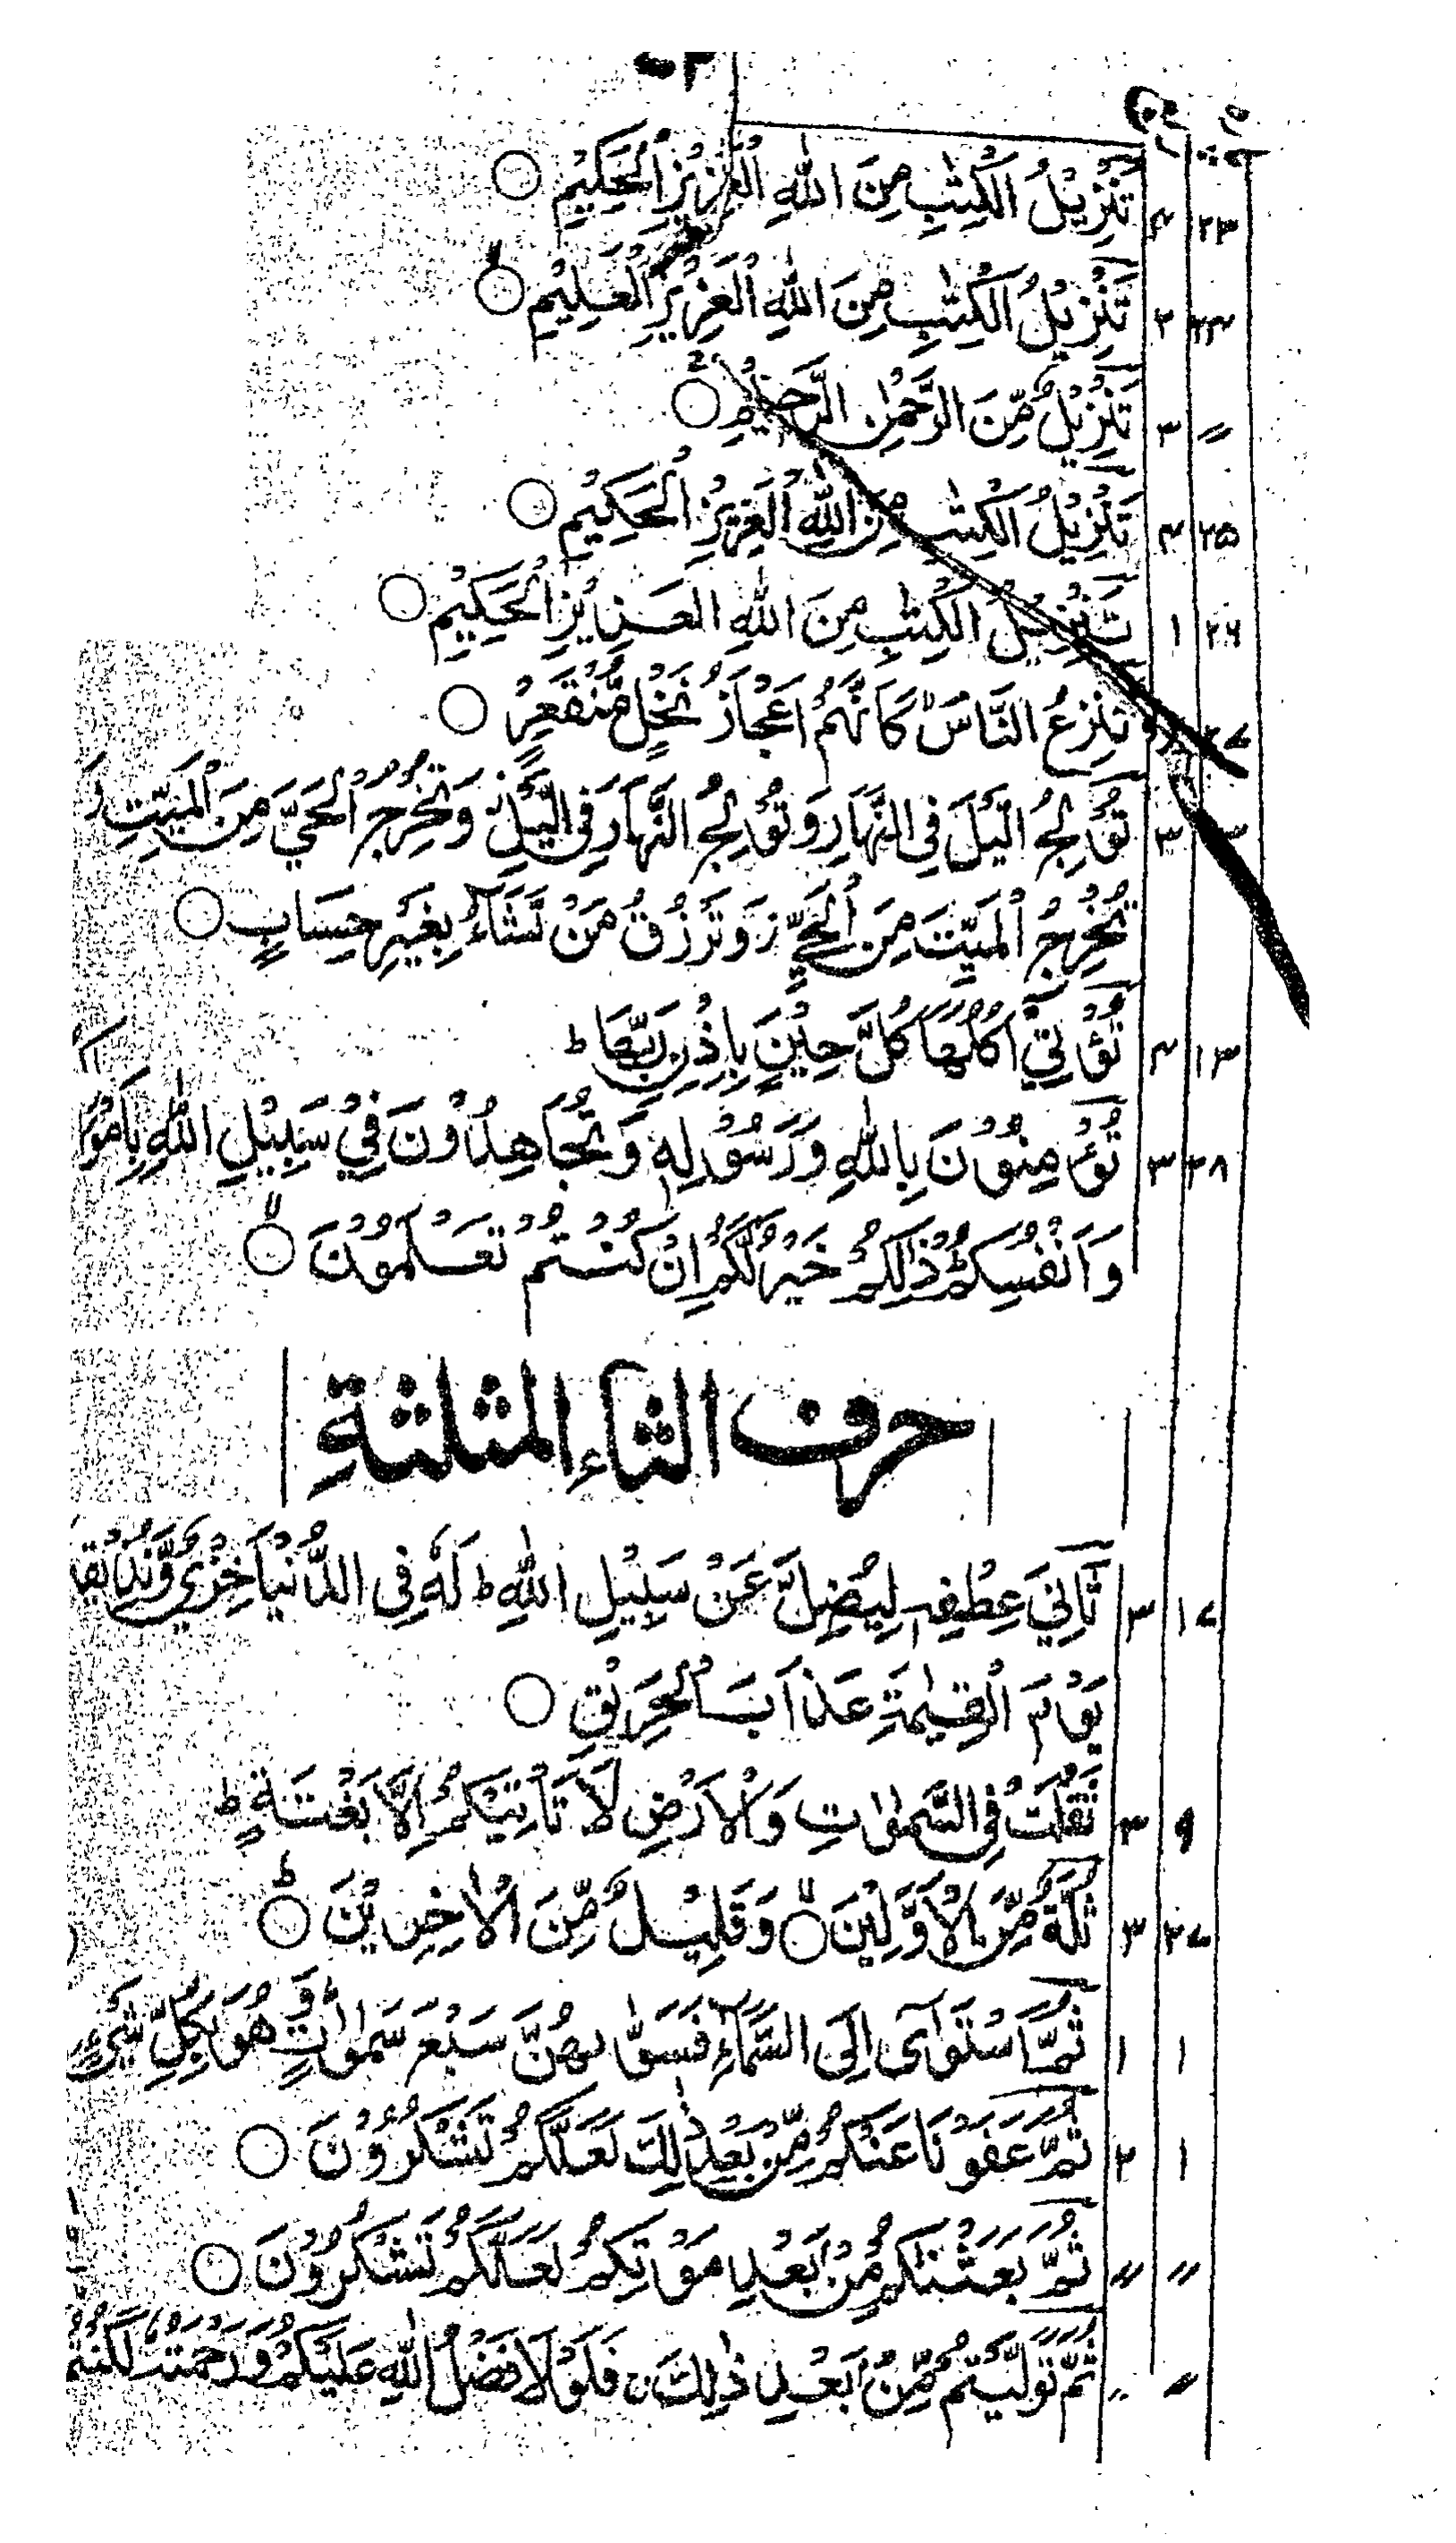 ٢٣ ٤ تَنْزِيْلُ الْكِتٰبِ مِنَ اللّٰهِ الْعَزِيْزِ الْحَكِيْمِ ○
٢٤ ٢ تَنْزِيْلُ الْكِتٰبِ مِنَ اللّٰهِ الْعَزِيْزِ الْعَلِيْمِ ○
〃 ٣ تَنْزِيْلٌ مِّنَ الرَّحْمٰنِ الرَّحِيْمِ ○
٢٥ ٤ تَنْزِيْلُ الْكِتٰبِ مِنَ اللّٰهِ الْعَزِيْزِ الْحَكِيْمِ ○
٢٦ ١ تَنْزِيْلُ الْكِتٰبِ مِنَ اللّٰهِ الْعَزِيْزِ الْحَكِيْمِ ○
٢٧ تَنْزِعُ النَّاسَ كَاَنَّهُمْ اَعْجَازُ نَخْلٍ مُّنْقَعِرٍ ○
٣ ٣ تُوْلِجُ الَّيْلَ فِى النَّهَارِ وَتُوْلِجُ النَّهَارَ فِى الَّيْلِ وَتُخْرِجُ الْحَيَّ مِنَ الْمَيِّتِ وَ
تُخْرِجُ الْمَيِّتَ مِنَ الْحَيِّ ز وَتَرْزُقُ مَنْ تَشَآءُ بِغَيْرِ حِسَابٍ ○
١٣ ٤ تُؤْتِيْٓ اُكُلَهَا كُلَّ حِيْنٍ بِاِذْنِ رَبِّهَا ط
٢٨ ٣ تُؤْمِنُوْنَ بِاللّٰهِ وَرَسُوْلِهٖ وَتُجَاهِدُوْنَ فِيْ سَبِيْلِ اللّٰهِ بِاَمْوَا
وَاَنْفُسِكُمْ ذٰلِكُمْ خَيْرٌ لَّكُمْ اِنْ كُنْتُمْ تَعْلَمُوْنَ ○
حرف الثاء المثلثةِ
١٧ ٣ ثَانِيَ عِطْفِهٖ لِيُضِلَّ عَنْ سَبِيْلِ اللّٰهِ ط لَهٗ فِى الدُّنْيَا خِزْىٌ وَّنُذِيْقُهٗ
يَوْمَ الْقِيٰمَةِ عَذَابَ الْحَرِيْقِ ○
٩ ٣ ثَقُلَتْ فِى السَّمٰوٰتِ وَالْاَرْضِ لَا تَاْتِيْكُمْ اِلَّا بَغْتَةً ط
٢٧ ٣ ثُلَّةٌ مِّنَ الْاَوَّلِيْنَ ○ وَقَلِيْلٌ مِّنَ الْاٰخِرِيْنَ ○ ط
١ ١ ثُمَّ اسْتَوٰٓى اِلَى السَّمَآءِ فَسَوّٰىهُنَّ سَبْعَ سَمٰوٰتٍ وَهُوَ بِكُلِّ شَيْءٍ
١ ٢ ثُمَّ عَفَوْنَا عَنْكُمْ مِّنْ بَعْدِ ذٰلِكَ لَعَلَّكُمْ تَشْكُرُوْنَ ○
〃 〃 ثُمَّ بَعَثْنٰكُمْ مِّنْ بَعْدِ مَوْتِكُمْ لَعَلَّكُمْ تَشْكُرُوْنَ ○
〃 〃 ثُمَّ تَوَلَّيْتُمْ مِّنْ بَعْدِ ذٰلِكَ فَلَوْلَا فَضْلُ اللّٰهِ عَلَيْكُمْ وَرَحْمَتُهٗ لَكُنْتُمْ